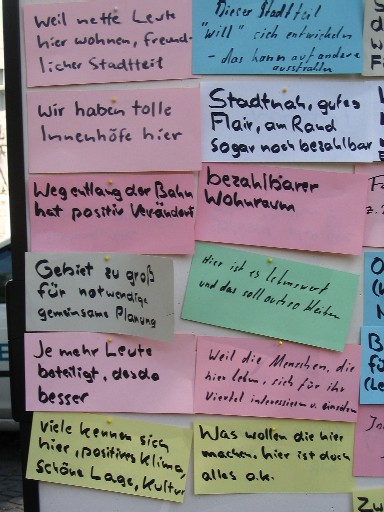 weil nette Leute
hier wohnen, freund-
licher Stadtteil
Dieser Stadtteil
"will" sich entwickeln
- das kann auf andere
ausstrahlen
Wir haben tolle
Innenhöfe hier
Stadtnah, gutes
Flair, am Rand
sogar noch bezahlbar
Weg entlang der Bahn
hat positiv verändert
bezahlbarer
Wohnraum
Gebiet zu groß
für notwendige
gemeinsame Planung
Hier ist es lebenswert
und das soll
bleiben
Je mehr Leute
beteiligt, desdo
besser
Weil die Menschen, die
hier leben, sich für ihr
Viertel interessieren u.
Viele kennen sich
hier, positives Klima,
schöne Lage, Kultur
Was wollen die hier
machen, hier ist doch
alles o.k.
Zu